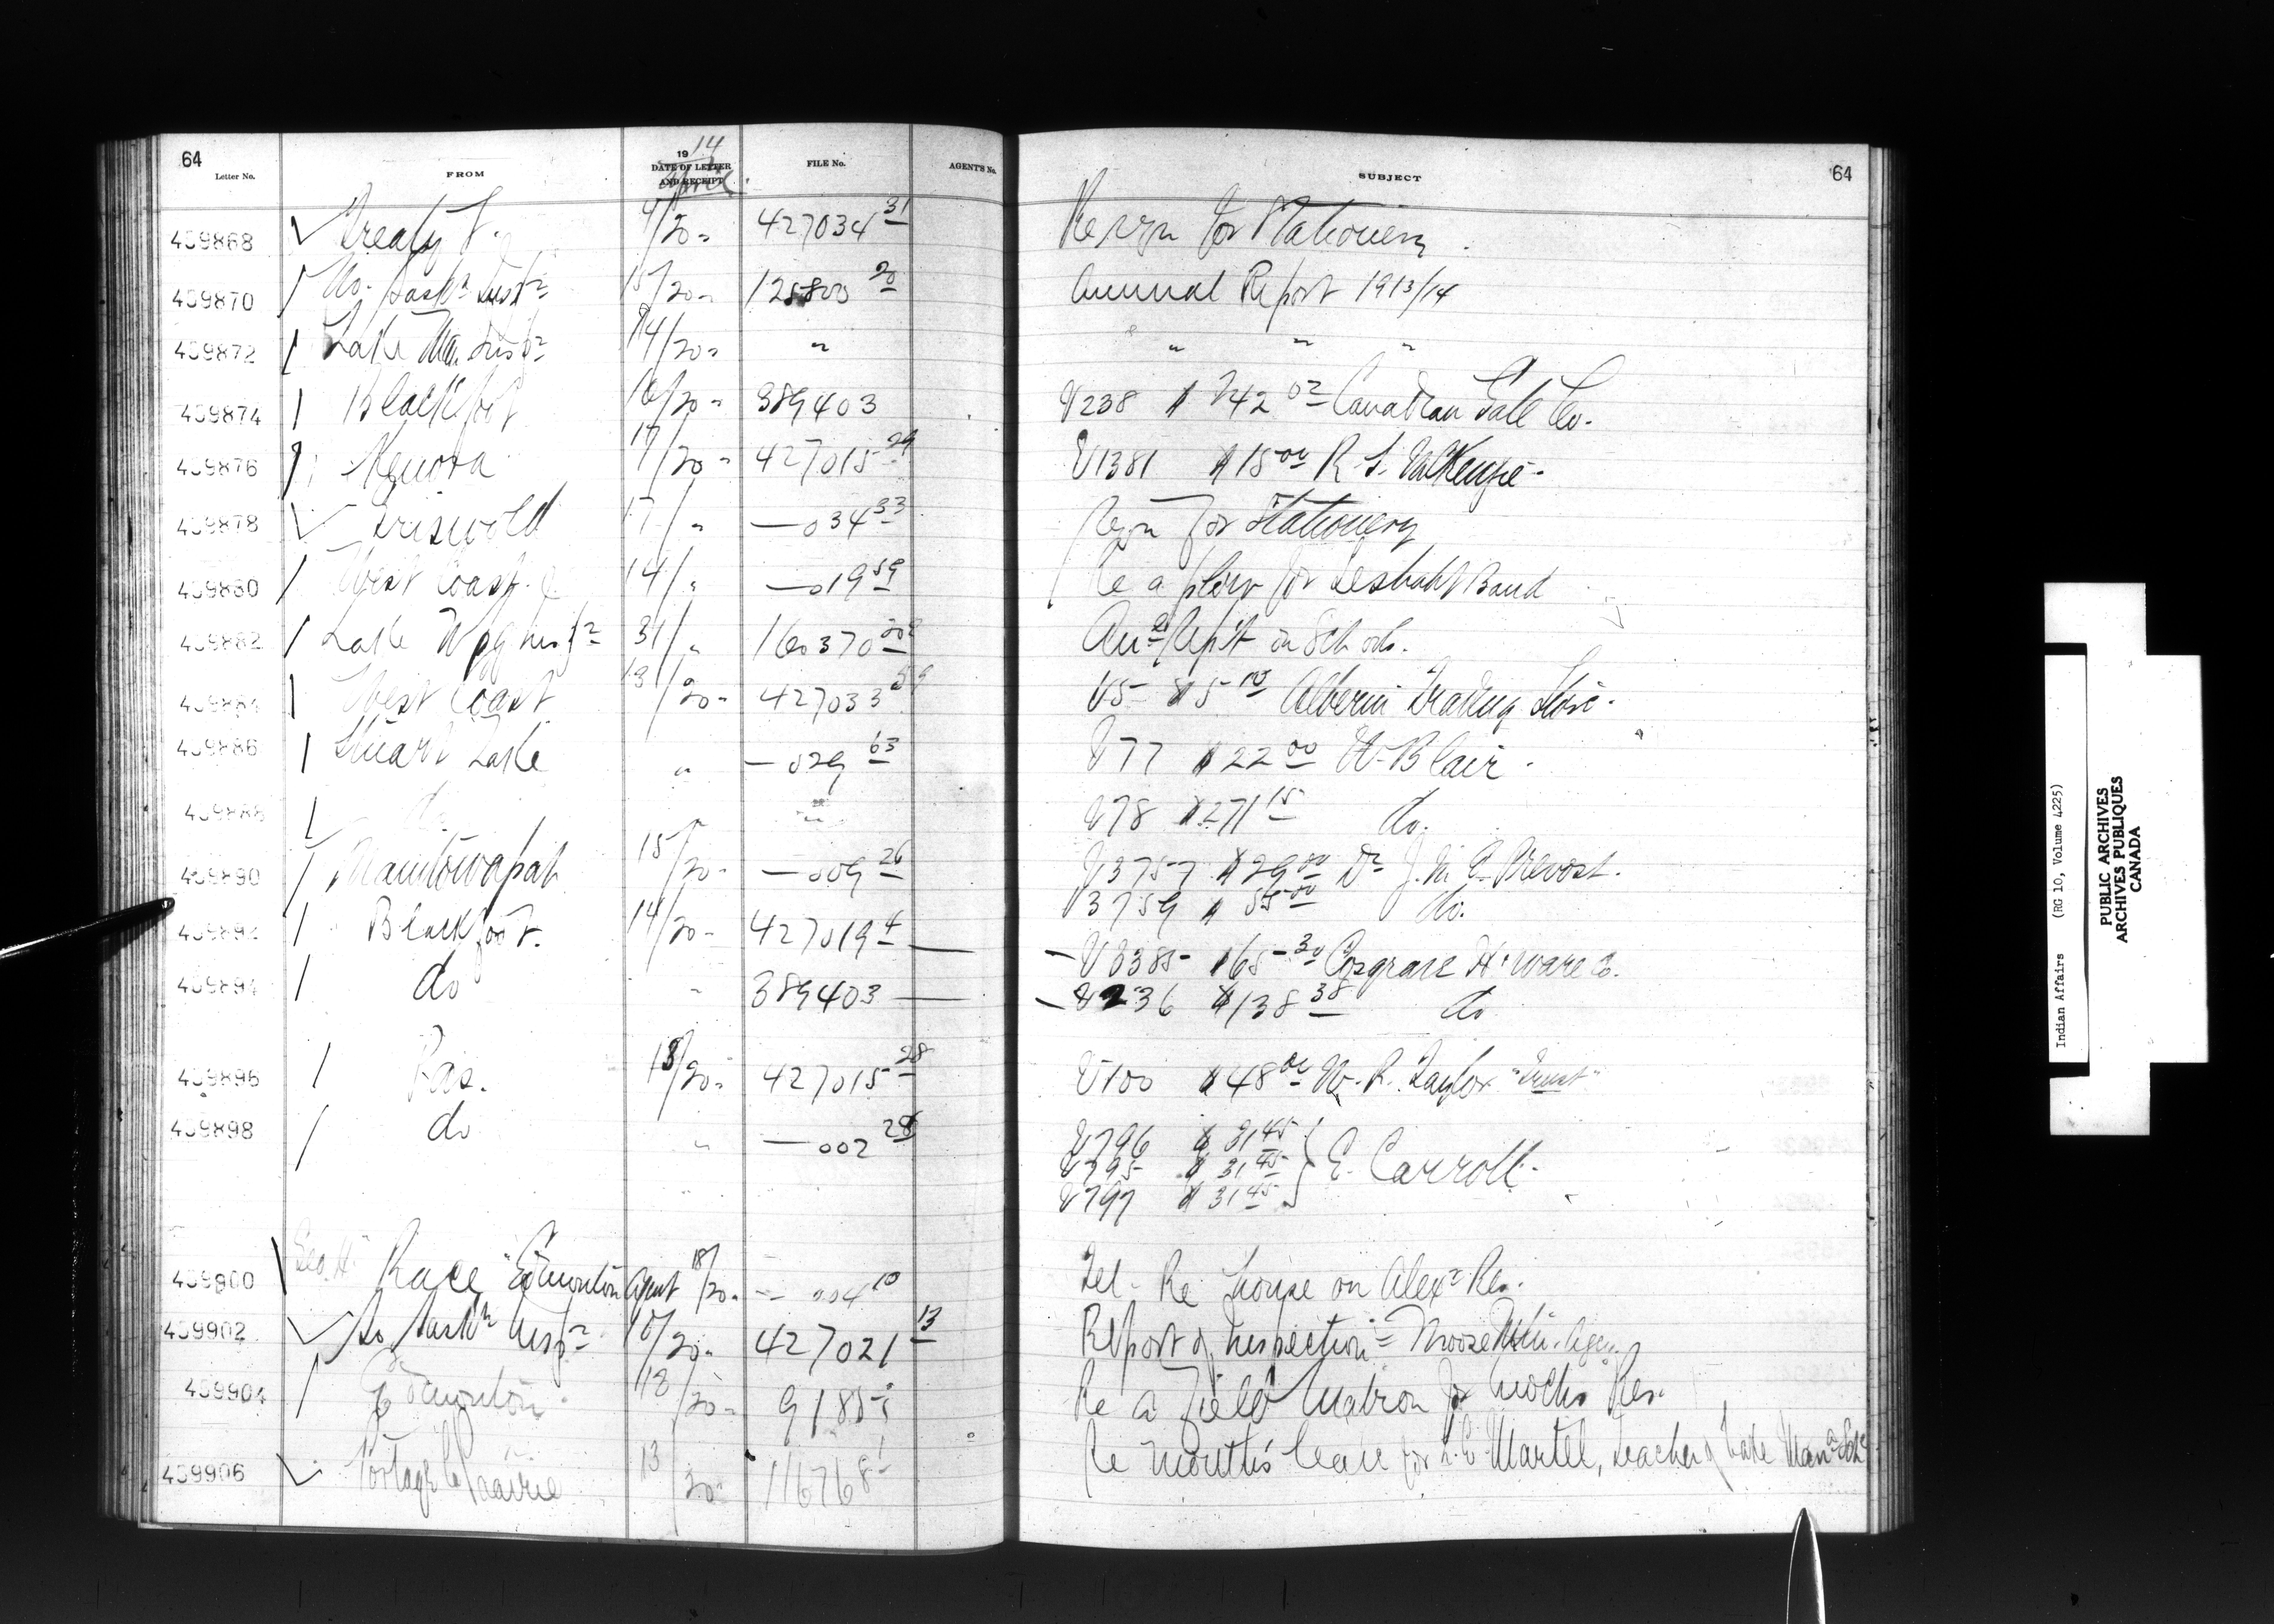 64
Letter No.
FROM
1914
DATE OF LETTER
AND RECEIPT
April
FILE No.
AGENT'S No.
SUBJECT
64
459868 Treaty 4/20 427034 31 Re rqn for Stationery
459870 No. Sask Insp 15/20 125800 20 Annual Report 1913/14
459872 Lake Man. Insp 14/20 " " " "
459874 Blackfoot 16/20 389403 V238 $ 742 02 Canadian Salt Co.
459876 Kenora 17/20 427015 29 V1381 $15 00 R. S. McKenzie
459878 Griswold 17/" — 034 33 Rqn for Stationery
459880 West Coast 14/" — 019 59 Re a plow for Seshaht Band
459882 Lake Wpg Insp 31/" 160370 An'l Rep't on Schools.
459884 West Coast 13/20 427033 59 V5 $5 Alberni Trading Store
459886 Stuart Lake " — 029 63 V77 $22 00 W. Blair
459888 do " " V78 $271 15 do.
459890 Manitowapah 15/20 — 009 26 V3757 $29 00 Dr J. M. E. Prevost.
V3759 $55 00 do.
459892 Blackfoot. 14/20 427019 4 — V3385 $65 30 Cosgrave H'ware Co.
459894 do " 389403 — V236 $138 38 do
459896 Pas. 18/20 427015 28 V100 $48 00 W. R. Taylor "Trust"
459898 do " — 002 28 V796 $31 45
V795 $31 45 } E. Carroll
V797 $31 45
459900 Geo. H. Race "Edmonton Agent 18/20 — 004 10 Tel - Re house on Alexr Res.
459902 So. Sask Insp 18/20 427021 13 Report of Inspection - Moose Mtn. Agcy
459904 Edmonton 18/20 Re a Field Matron for Res.
459906 Portage la Prairie 13/20 116768 1 Re month's leave for Martel, teacher of Lake Mana Sch
Indian Affairs (RG 10, Volume 4225)
PUBLIC ARCHIVES
ARCHIVES PUBLIQUES
CANADA